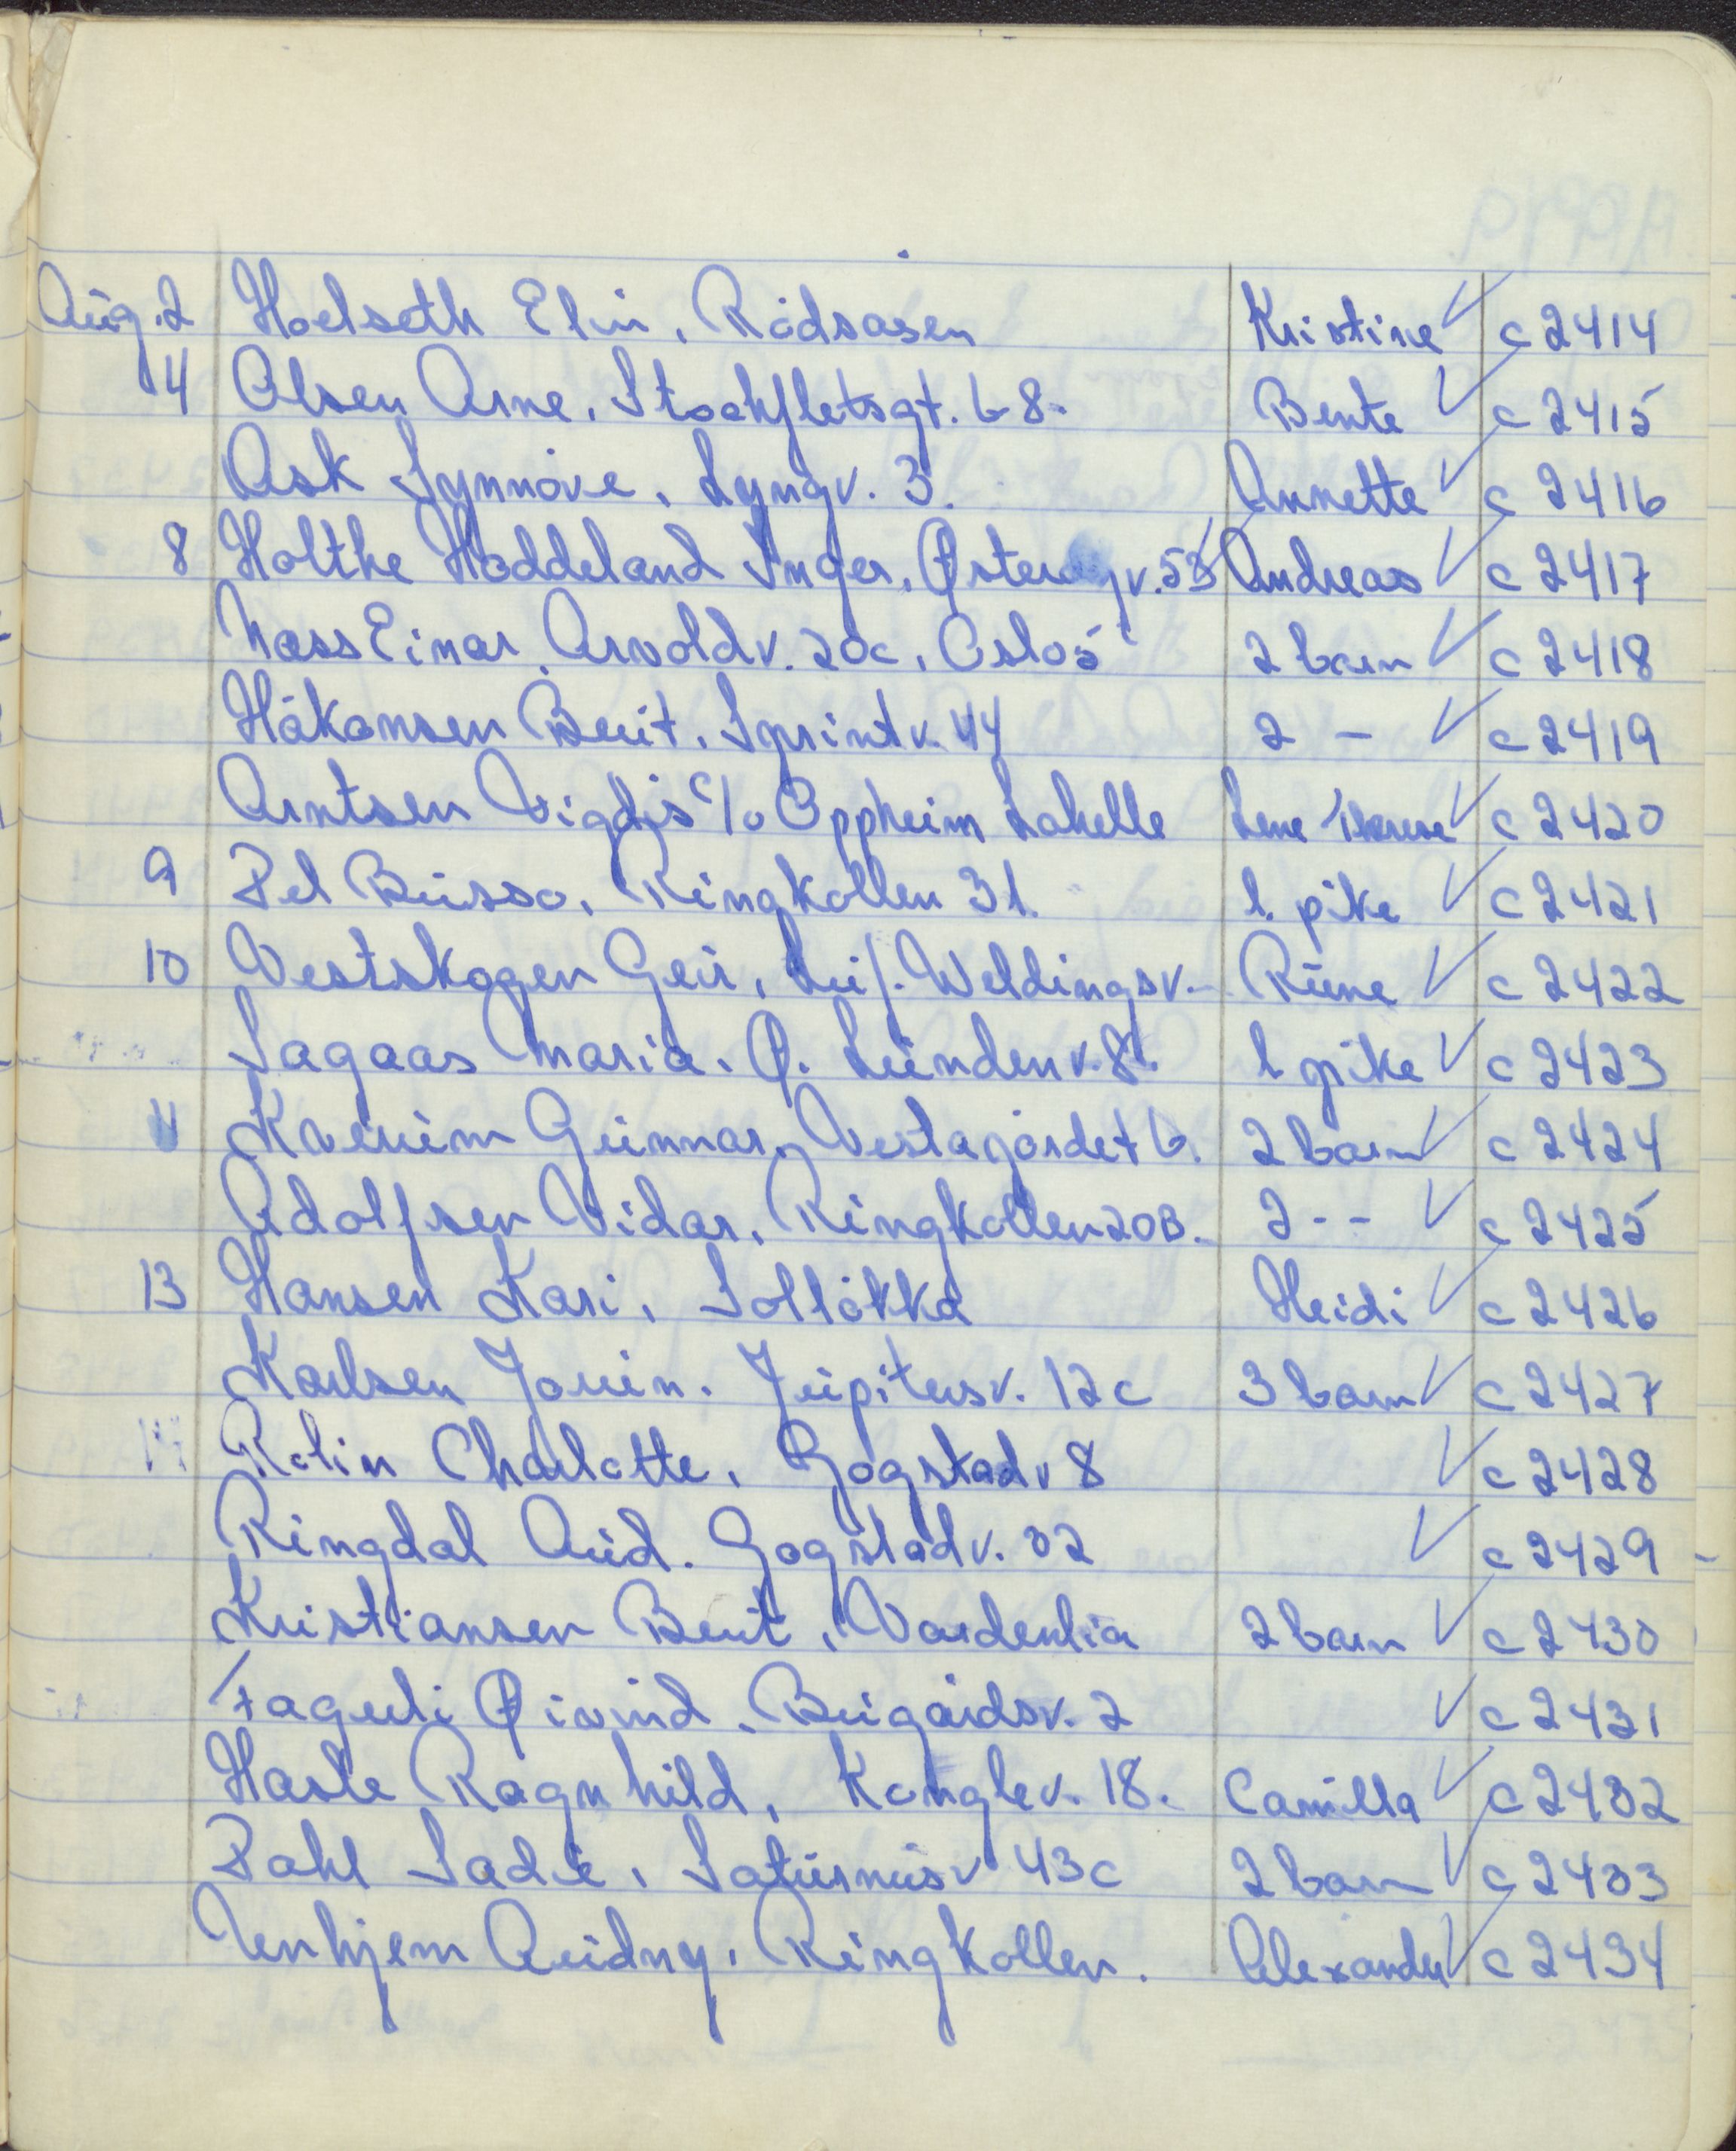 Aug. 2 Hoelseth Elin, Rødsåsen Kristine ✓ c 2414
4 Olsen Arne, Stockfletsgt. 68. Bente ✓ c 2415
Ask Synnøve, Lyngv. 3. Annette ✓ c 2416
8 Holthe Hoddeland Inger, v. 53 Andreas ✓ c 2417
Næss Einar, Arvoldv. 20c, Oslo 5 2 barn ✓ c 2418
Håkonsen Berit, Sprintv. 44 2 - ✓ c 2419
Arntsen Vigdis c/o Oppheim Lahelle Lene Therese ✓ c 2420
9 Pel Busso, Ringkollen 31. 1. pike ✓ c 2421
10 Vestskogen Geir, Leif. Weldingsv. Rune ✓ c 2422
Sagaas Maria, Ø. Lundenv. 8. 1 pike ✓ c 2423
Gunnar, Vestagårdet 6. 2 barn ✓ c 2424
Adolfsen Vidar, Ringkollen 20B. 2 - - ✓ c 2425
13 Hansen Kari, Solløkka Heidi ✓ c 2426
Karlsen Jorun. Jupitersv. 12c 3 barn ✓ c 2427
Rolin Charlotte, Gogstadv 8 ✓ c 2428
Ringdal Aud. Gogstadv. 32 ✓ c 2429
Kristiansen Berit, Vardenlia 2 barn ✓ c 2430
Fagerli Øivind, Bugårdsv. 2 ✓ c 2431
Hasle Ragnhild, Konglev. 18. Camilla ✓ c 2432
Pahl Sadie, Saturnusv 43c 2 barn ✓ c 2433
Venhjem Audny, Ringkollen. Alexander ✓ c 2434